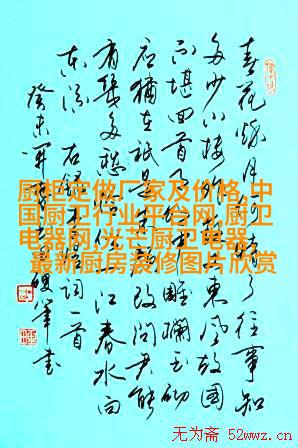 春花秋月何时了往事知
多少小楼昨夜又东风故国
不堪回首月明中雕栏玉砌
应犹在只是朱颜改问君能
有几多愁恰似一江春水向
东流 右录李煜词一首
癸未 军书
厨柜定做厂家及价格,中
国厨卫行业平台网,厨卫
电器网,光芒厨卫电器,
最新厨房装修图片欣赏
无为斋 52wwz.cn